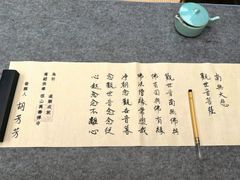 南無大悲
觀世音菩薩
觀世音南無佛與
佛有因與佛有緣
佛法僧緣常樂我
淨朝念觀世音暮
念觀世音念念從
心起念念不離心
胡芳芳